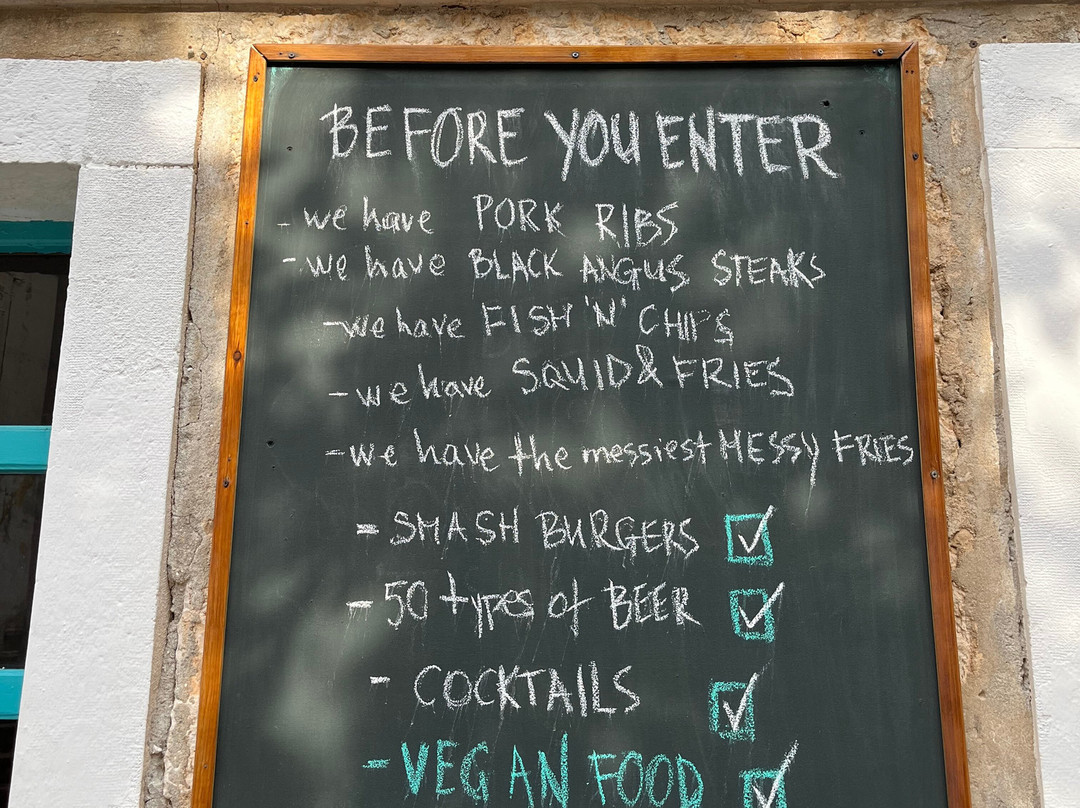 BEFORE YOU ENTER
- we have PORK RIBS
- we have BLACK ANGUS STEAKS
- we have FISH 'N' CHIPS
- we have SQUID & FRIES
- we have the messiest MESSY FRIES
= SMASH BURGERS ☑
- 50 types of BEER ☑
- COCKTAILS ☑
- VEGAN FOOD ☑